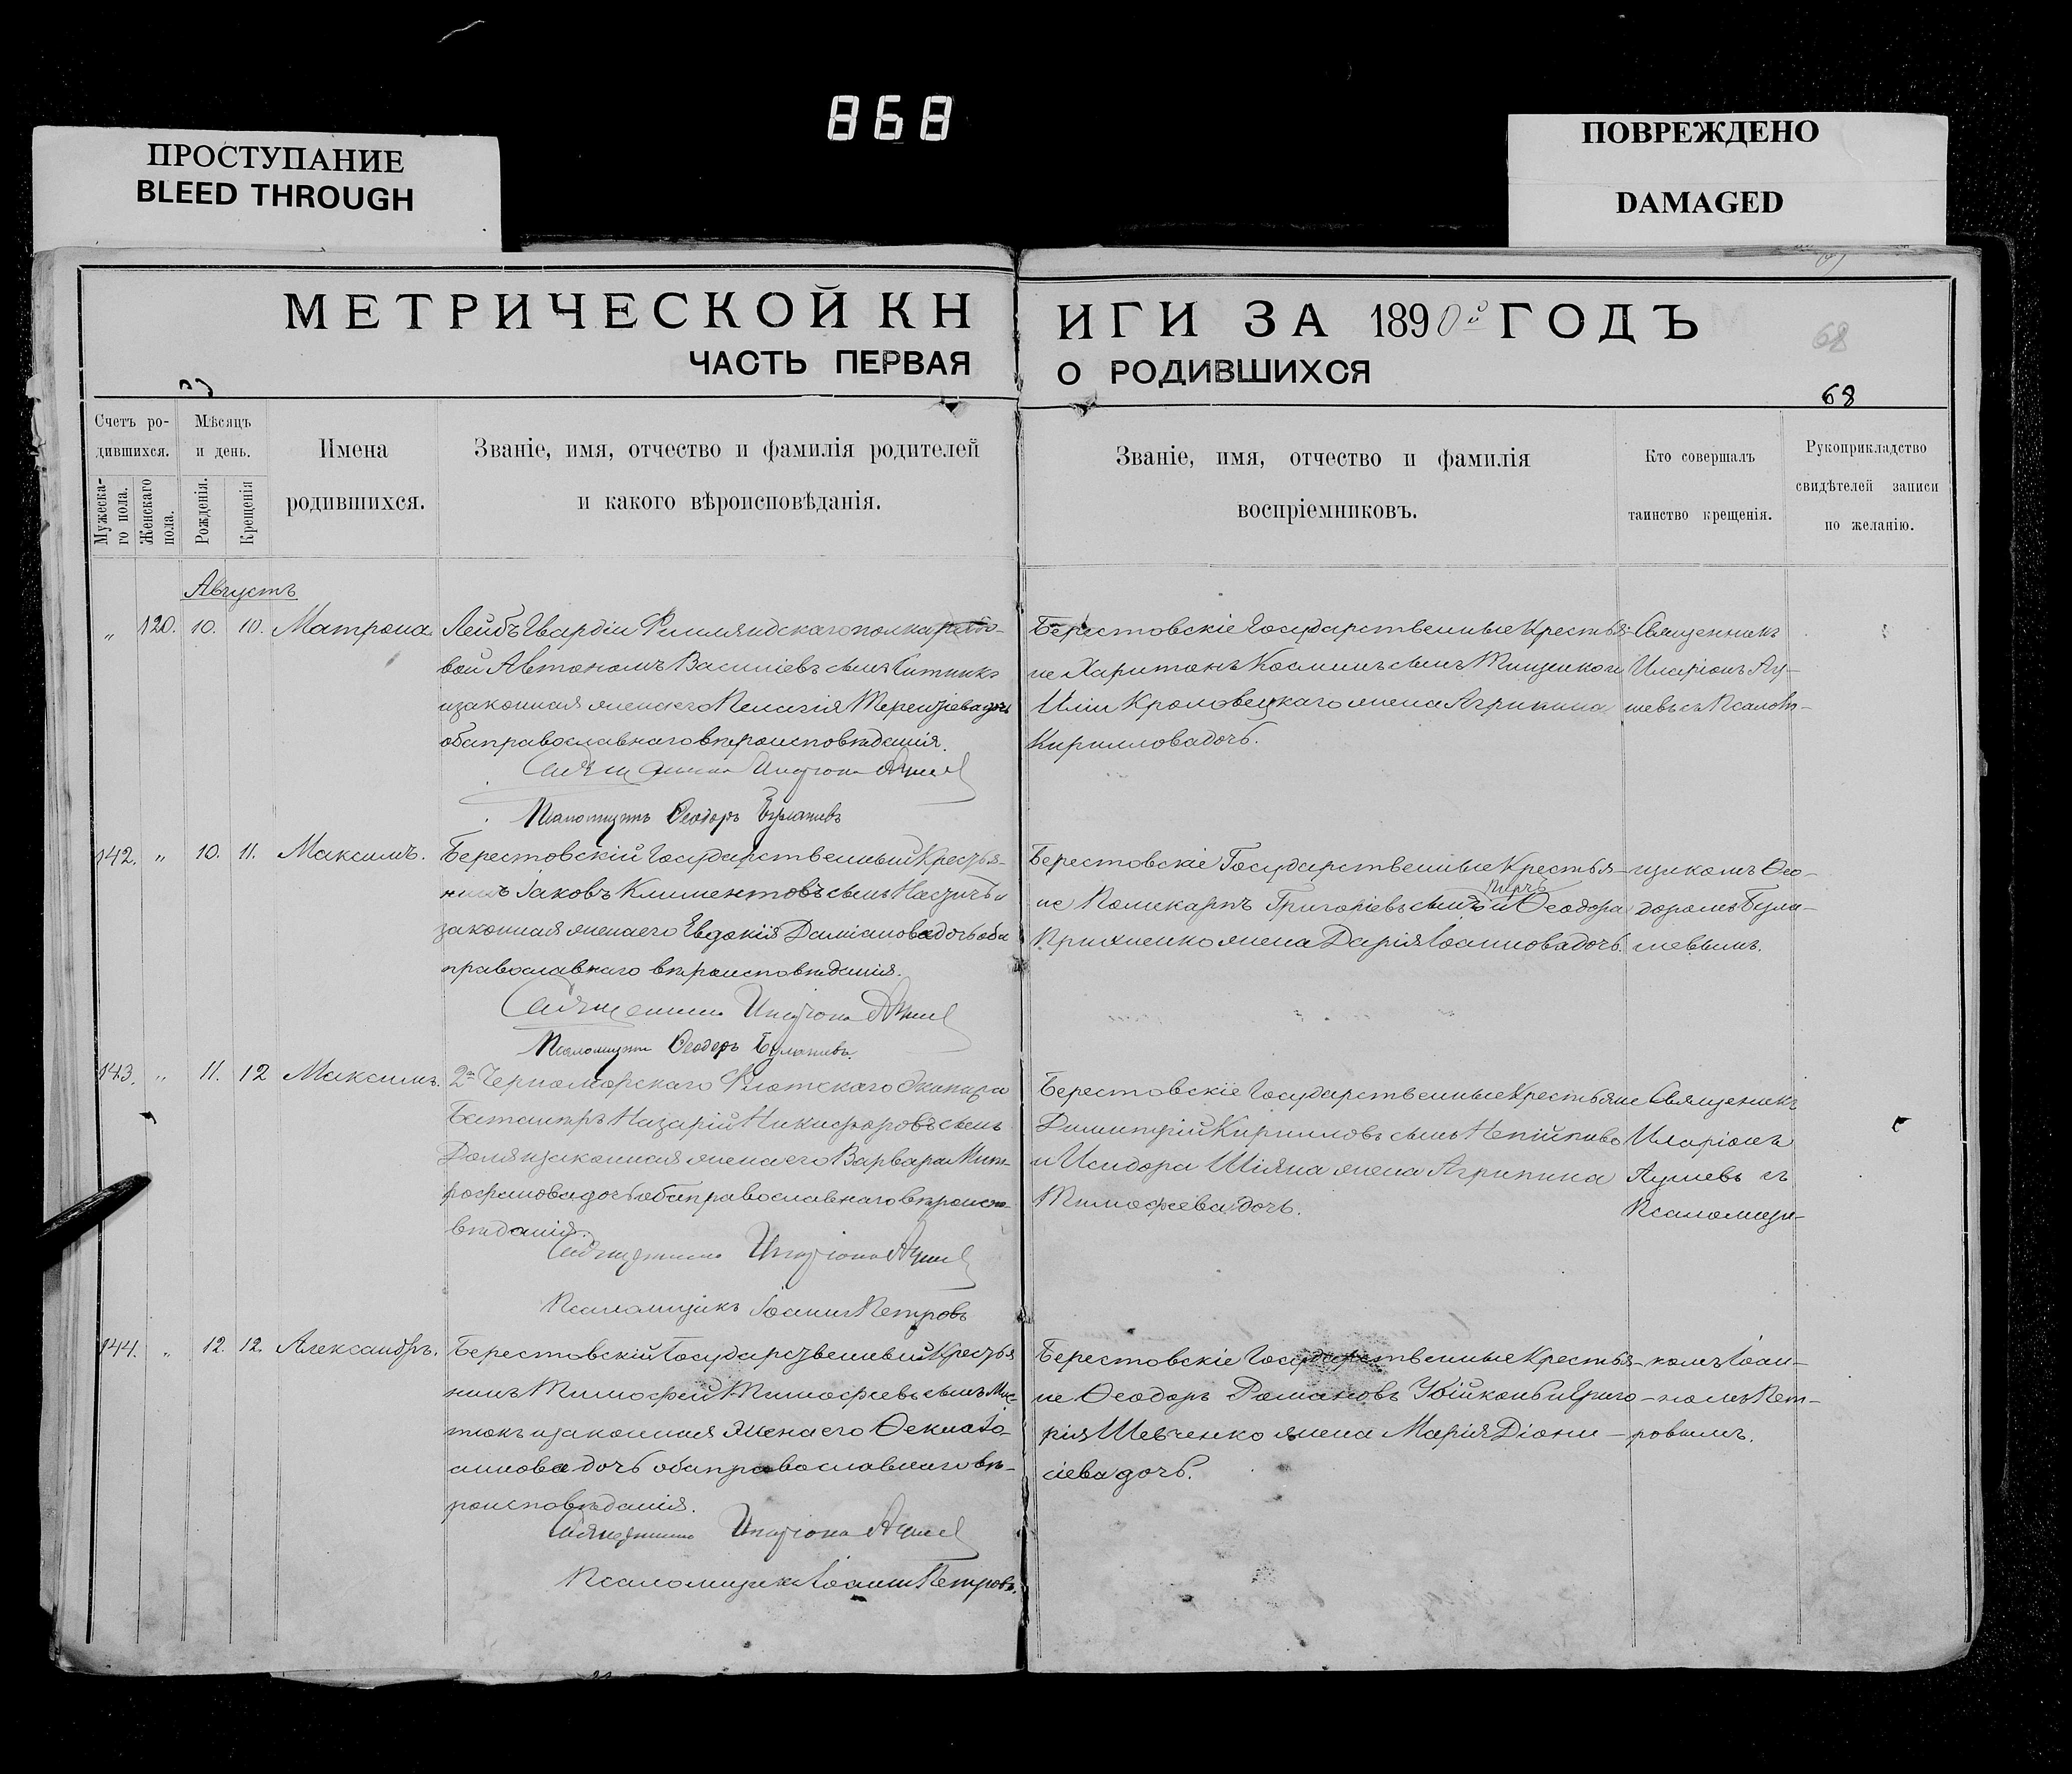 868
ПРОСТУПАНИЕ
BLEED THROUGH
ПОВРЕЖДЕНО
DAMAGED
МЕТРИЧЕСКОЙ КН
ЧАСТЬ ПЕРВАЯ
ИГИ ЗА 1890й ГОДЪ
О РОДИВШИХСЯ
68
68
Счетъ ро-
дившихся.
Мужеска-
го пола.
Женскаго
пола.
Мѣсяцъ
и день.
Рожденія.
Крещенія
Имена
родившихся.
Званіе, имя, отчество и фамилія родителей
и какого вѣроисповѣданія.
Званіе, имя, отчество и фамилія
воспріемниковъ.
Кто совершалъ
таинство крещенія.
Рукоприкладство
свидѣтелей записи
по желанію.
Августъ
„ 120. 10. 10. Матрона.
Лейбъ Гвардіи Финляндскаго полка рядо-
вой Автономъ Василіевъ сынъ
и законная жена его Пелагія Терентіева дочь
оба православнаго вѣроисповѣданія.
Священникъ Иларіонъ
Псаломщикъ Ѳеодоръ
Берестовскіе Государственные Крестья-
не Харитонъ Косминъ сынъ Тищенко и
Иліи Кроловецкаго жена Агрипина
Кириллова дочь.
Священникъ
Иларіонъ
съ Псалом-
142. „ 10. 11. Максимъ.
Берестовскій Государственный Крестья-
нинъ Іаковъ Климентовъ сынъ и
законная жена его Евдокія Даміанова дочь оба
православнаго вѣроисповѣданія.
Священникъ Иларіонъ
Псаломщикъ Ѳеодоръ
Берестовскіе Государственные Крестья-
не Поликарпъ Григоріевъ сынъ и Ѳеодора
Прихненко жена Дарія Іоаннова дочь.
щикомъ Ѳео-
доромъ
143. „ 11. 12 Максимъ.
2го Черноморскаго Флотскаго Экипажа
Назарій Никифоровъ сынъ
Доля и законная жена его Варвара Мит-
рофанова дочь оба православнаго вѣроиспо-
вѣданія.
Священникъ Иларіонъ
Псаломщикъ Іоаннъ Петровъ
Берестовскіе Государственные Крестьяне
Димитрій Кирилловъ сынъ Непійпиво
и Исидора Шіяна жена Агрипина
Тимофеева дочь.
Священникъ
Иларіонъ
съ
Псаломщи-
144. „ 12. 12. Александръ.
Берестовскій Государственный Крестья
нинъ Тимофей Тимофеевъ сынъ
и законная жена его Ѳекла Іо-
аннова дочь оба православнаго вѣ-
роисповѣданія.
Священникъ Иларіонъ
Псаломщикъ Іоаннъ Петровъ.
Берестовскіе Государственные Крестья-
не Ѳеодоръ Романовъ Убійконь и Григо-
рія Шевченко жена Марія Діони-
сіева дочь.
комъ Іоан-
номъ Пет-
ровымъ.